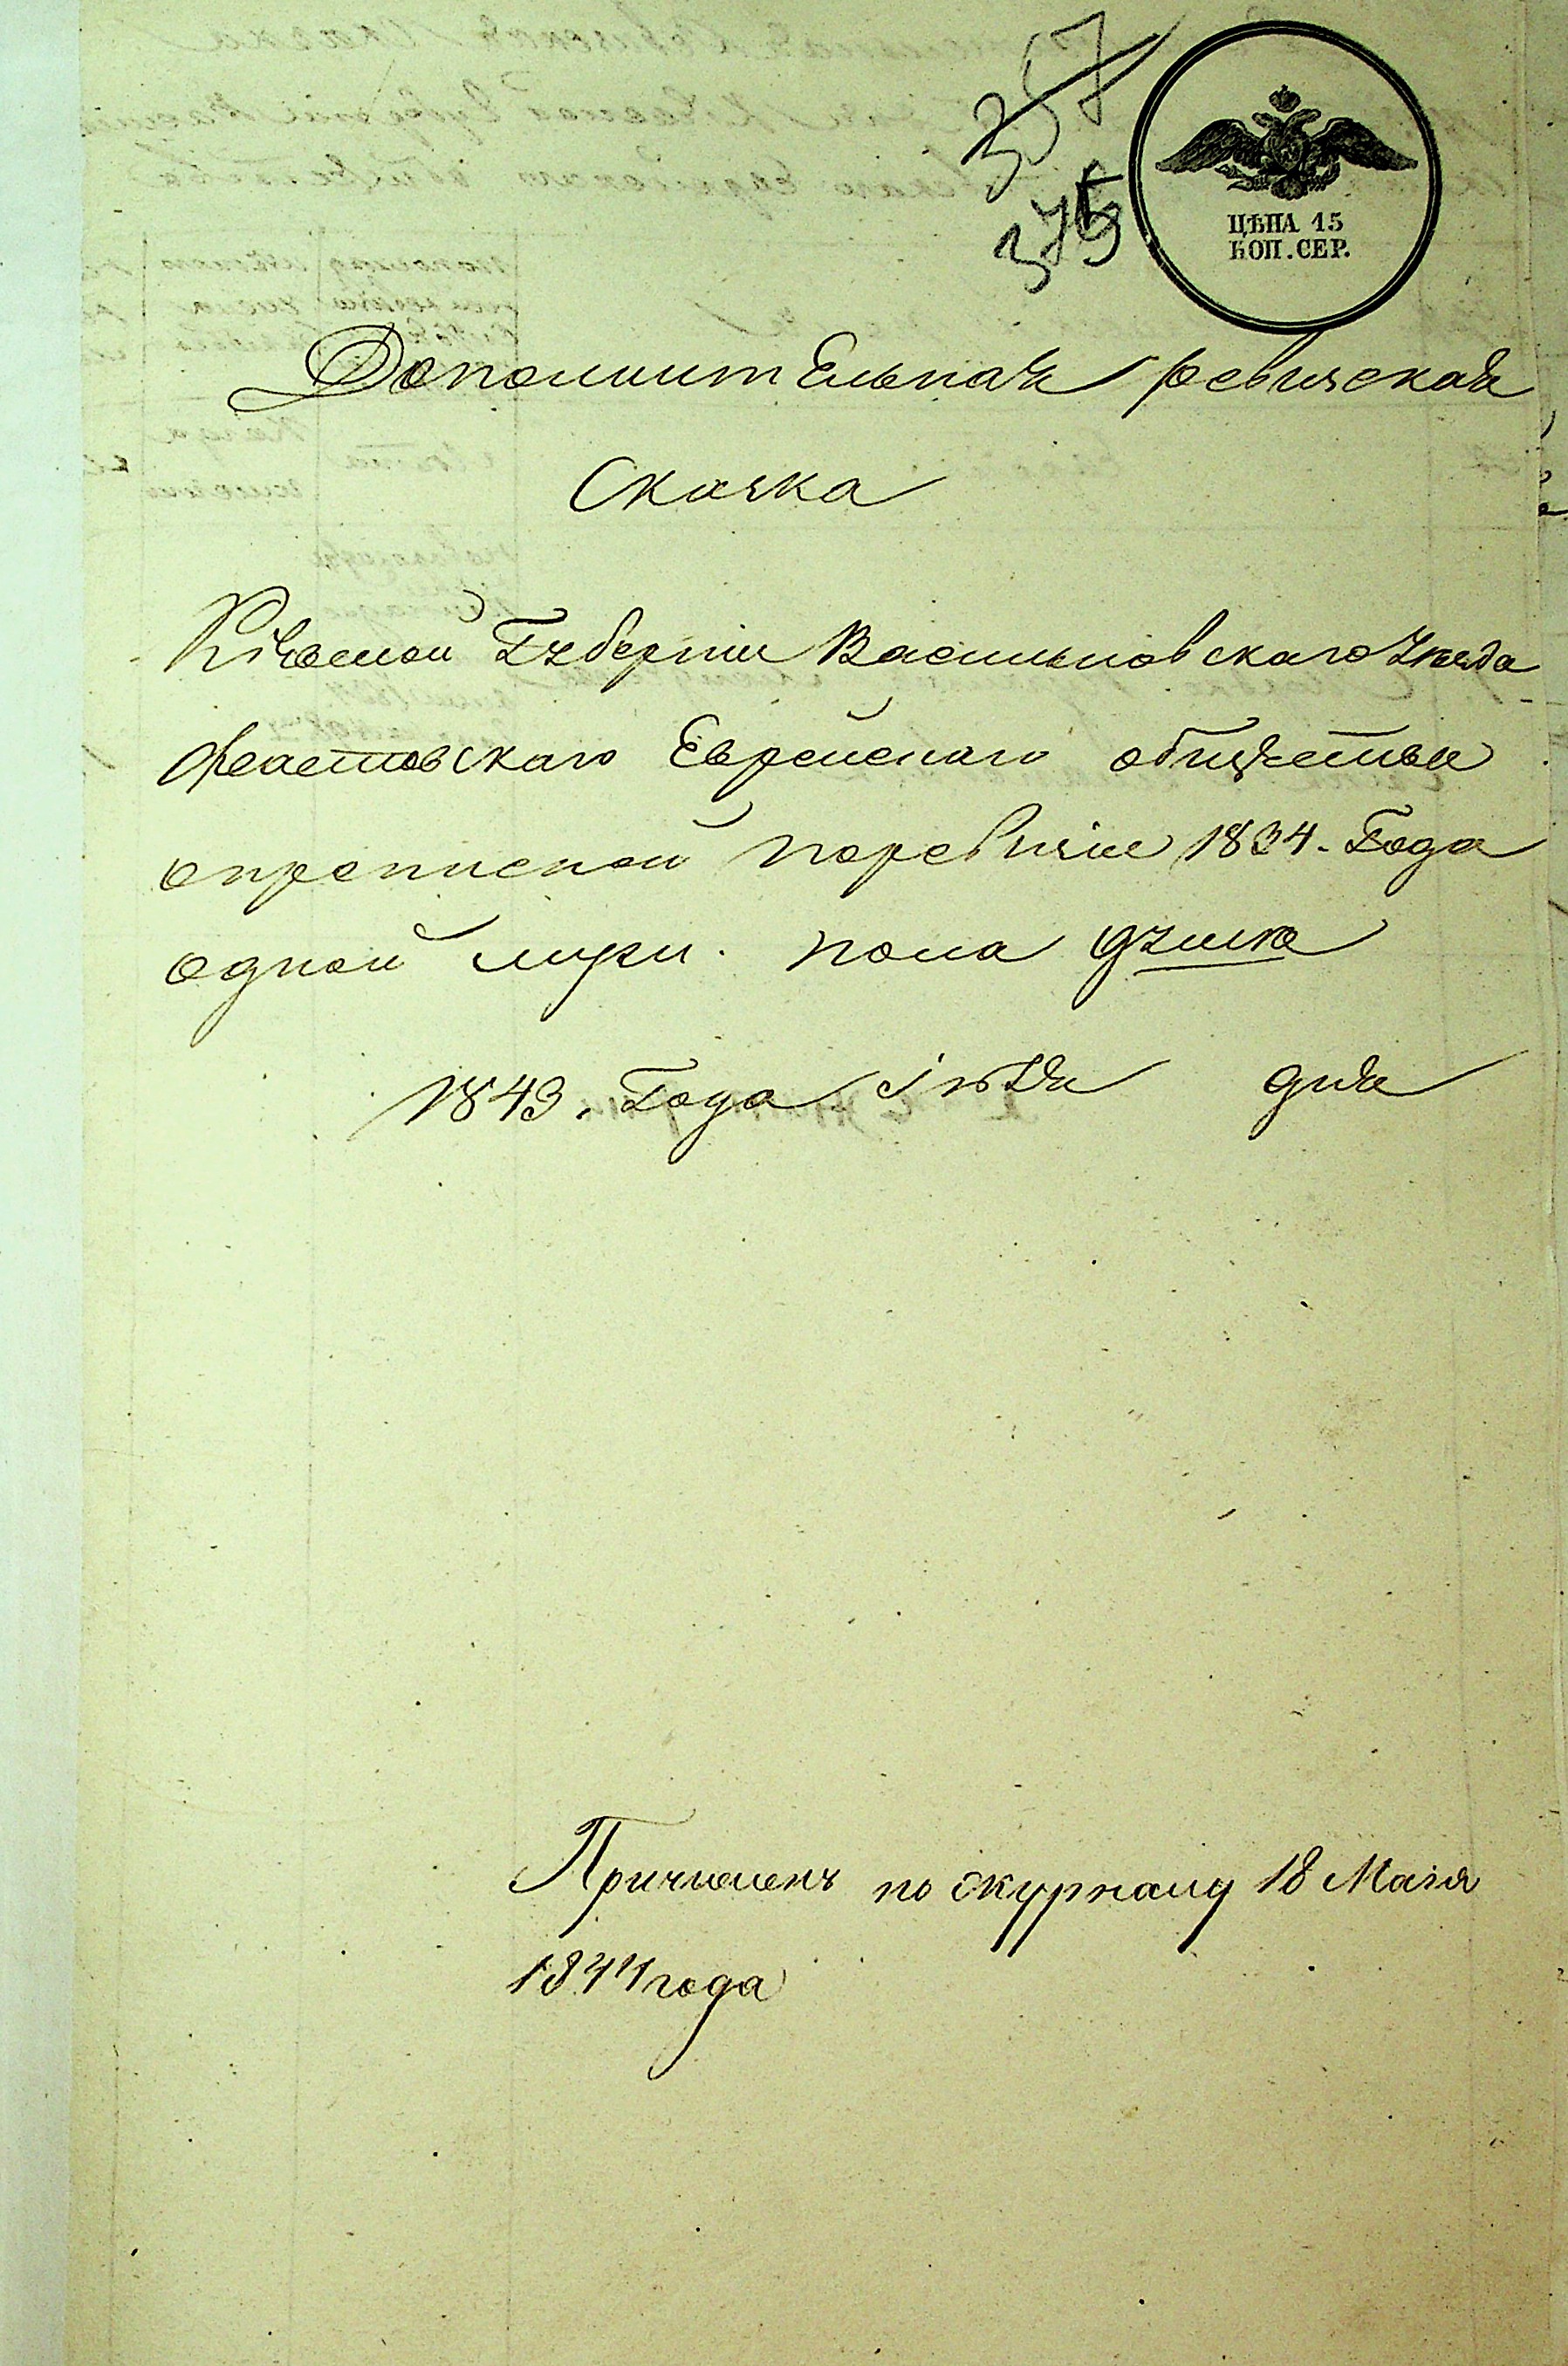 357
375
ЦѢНА 15
КОП. СЕР.
Дополнительная ревизская
Сказка
Кіевской Губерніи Васильковскаго Уезда
Фастовскаго Еврейскаго общества
опрописной поревизіи 1834. Года
одной мужи. пола душе
1843. Года дня
Причисленъ по журналу 18 Маія
1844 года